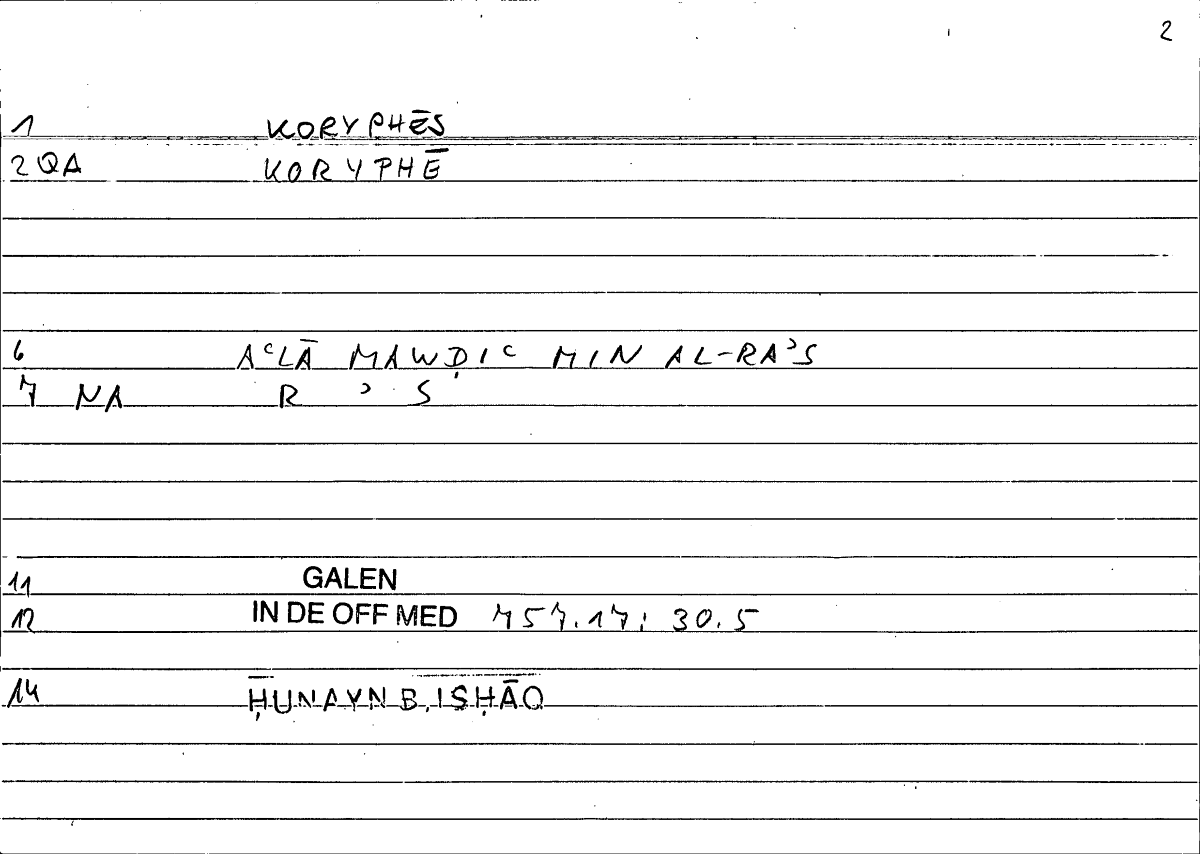 2
1 KORYPHĒS
2 QA KORYPHĒ
6 AʿLĀ MAWḌIʿ MIN AL-RAʾS
7 NA R ʾ S
11 GALEN
12 IN DE OFF MED 757.17: 30.5
14 ḤUNAYN B. ISḤĀQ